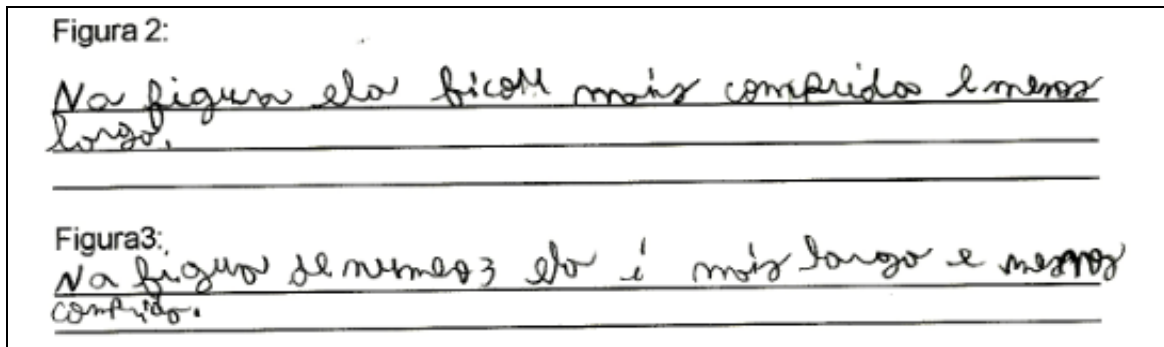 Figura 2:
Na figura ela ficou mais comprida e menos
larga.
Figura3:
Na figura de numero 3 ela é mais larga e menos
comprida.